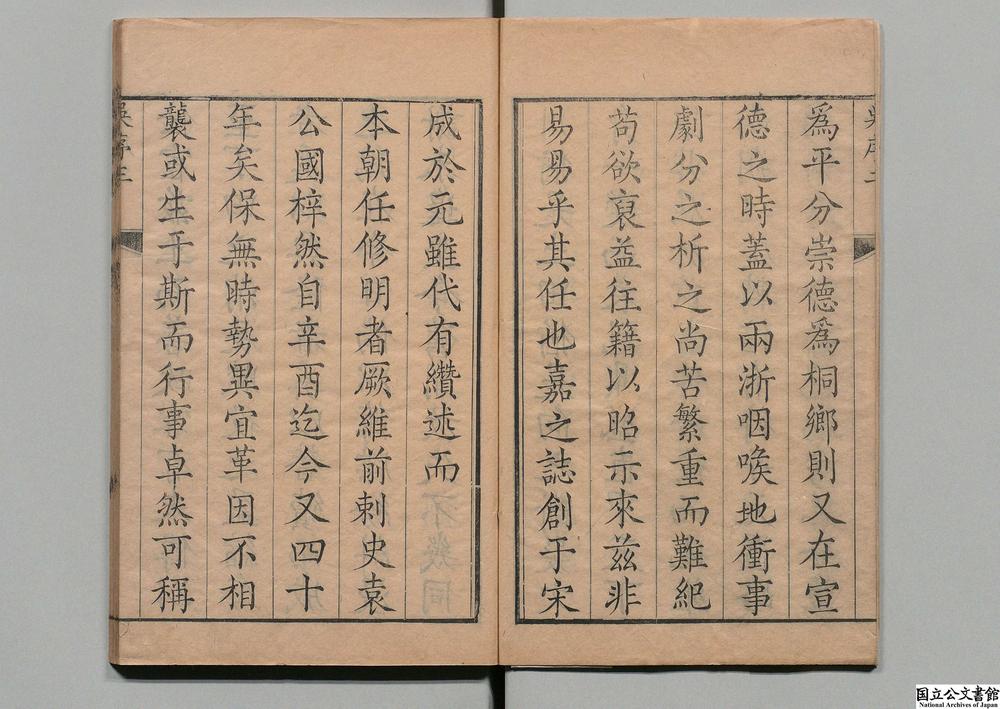 爲平分崇德爲桐鄉則又在宣
德之時蓋以兩浙咽喉地衝事
劇分之析之尚苦繁重而難紀
苟欲裒益往籍以昭示來兹非
易易乎其任也嘉之誌創于宋
成於元雖代有纘述而
本朝任修明者厥維前刺史袁
公國梓然自辛酉迄今又四十
年矣保無時勢異宜革因不相
襲或生于斯而行事卓然可稱
吳序三
国立公文書館
National Archives of Japan